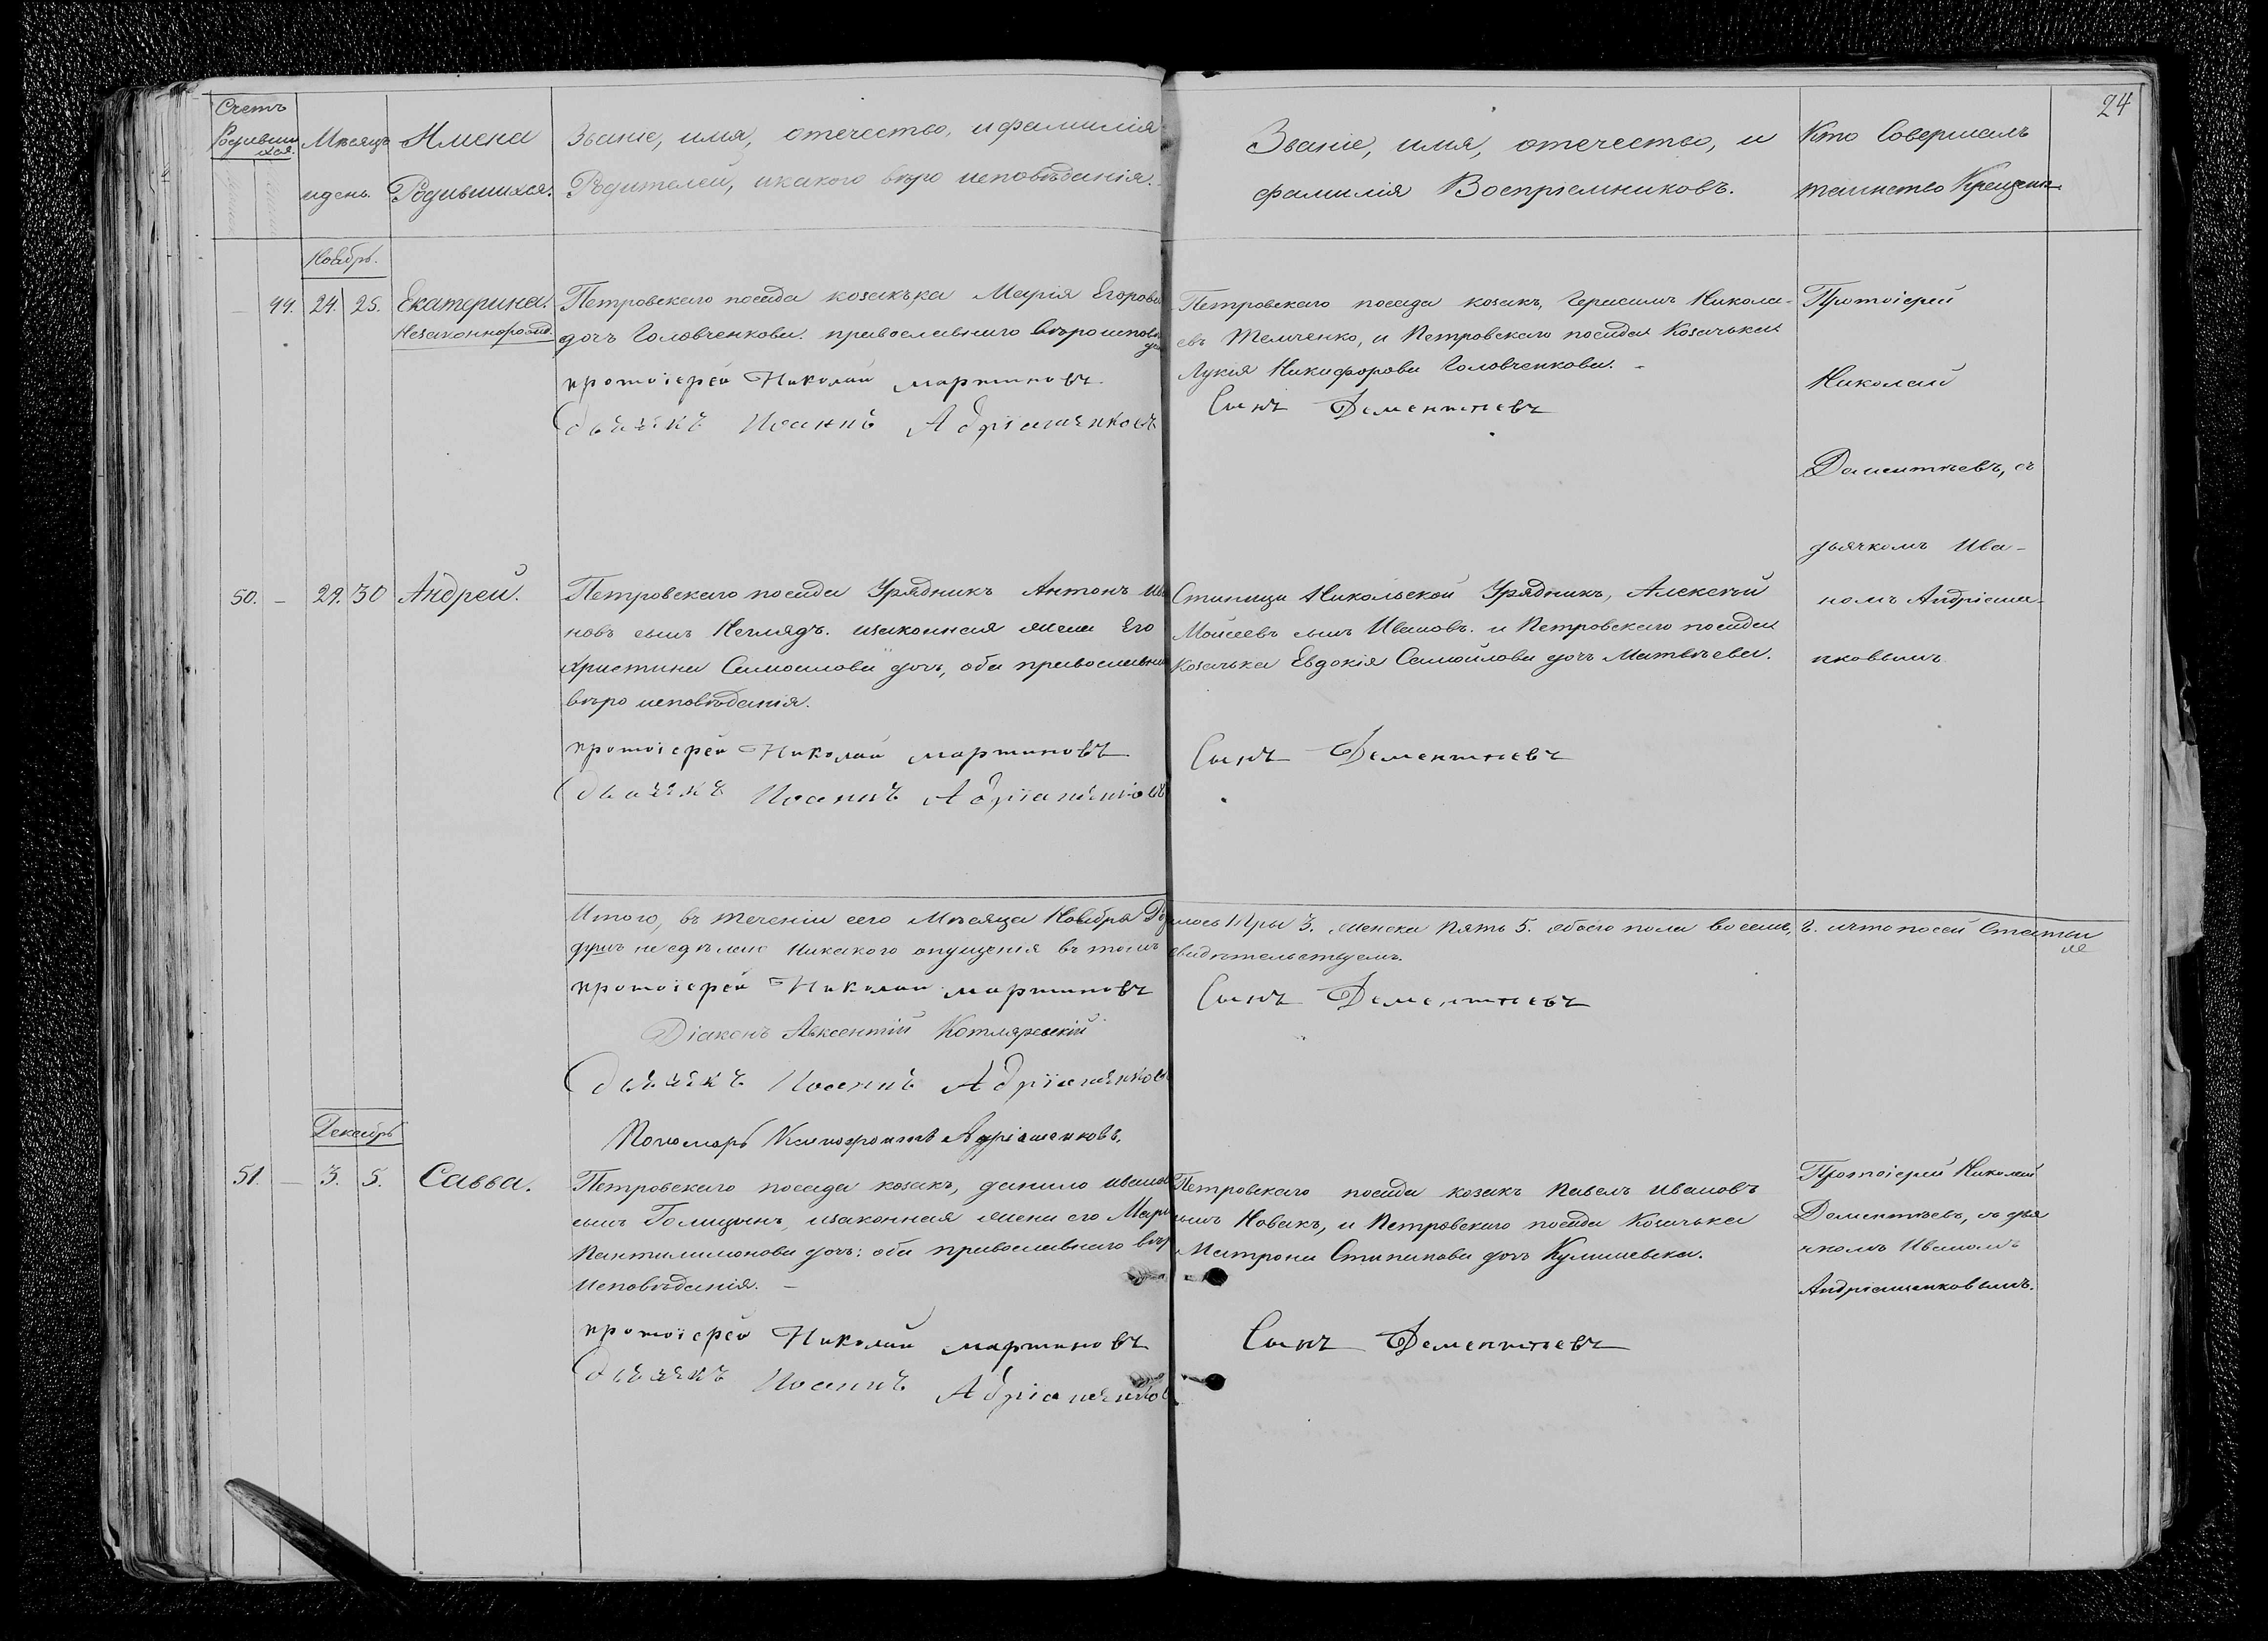 24
Счетъ
Родивши
хся.
Мѣсяцъ
и день.
Имена
Родившихся.
Званіе, имя, отечество, и фамилія
Родителей, и какого вѣро исповѣданія.
Званіе, имя, отечество, и
фамилія Воспріемниковъ.
Кто Совершалъ
таинство Крещенія
Ноябрь.
— 49. 24. 25. Екатерина.
Незаконнорожд.
Петровскаго посада козачька Марія Егорова
дочъ Головченкова. православнаго вѣроисповѣ
да
протоіерей Николай мартиновъ
дьячекъ Иоаннъ Адріашенковъ
Петровскаго посада козакъ, Герасимъ Никола-
евъ Темченко, и Петровскаго посада Козачька
Лукія Никифорова Головченкова. -
Сынъ Дементьевъ
Протоіерей
Николай
Дементьевъ, съ
дьячкомъ Ива-
номъ Андріаше-
нковымъ
50. — 29. 30 Андрей.
Петровскаго посада Урядникъ Антонъ Ива
новъ сынъ Неглядъ. изаконная жена Его
Христина Самоилова дочь, оба православнаго
вѣро исповѣданія.
протоіерей Николай мартиновъ
дьячекъ Иоаннъ Адріашенковъ
Станицы Никольской Урядникъ, Алексѣй
Моисеевъ сынъ Ивановъ. и Петровскаго посада
Козачька Евдокія Самойлова дочъ Матвѣева.
Сынъ Дементьевъ
Итого, въ теченіи сего Мѣсяца Ноября Родилось Мужеска три 3. женска пять 5. обоего пола восемь, 8. и что посей Статьи
душъ не сдѣлано никакого опущенія въ томъ свидѣтельствуемъ.
протоіерей Николай мартиновъ
Сынъ Дементьевъ
Діаконъ Авксентій Котляревскій
дьячекъ Иоаннъ Адріашенковъ
Пономарь Ксенофонтъ Адріашенковъ.
Декабрь
51. — 3. 5. Савва.
Петровскаго посада козакъ, данило ивановъ
сынъ Голицынъ, изаконная жена его Марія
Пантилимонова дочъ: оба православнаго вѣро
Исповѣданія. —
протоіерей Николай мартиновъ
дьячекъ Иоаннъ Адріашенковъ
Петровскаго посада козакъ Павелъ Ивановъ
сынъ Новакъ, и Петровскаго посада Козачька
Матрона Стипанова дочъ Кулишевска.
Сынъ Дементьевъ
Протоіерей Николай
Дементьевъ, съ дья
чкомъ Иваномъ
Андріашенковымъ.